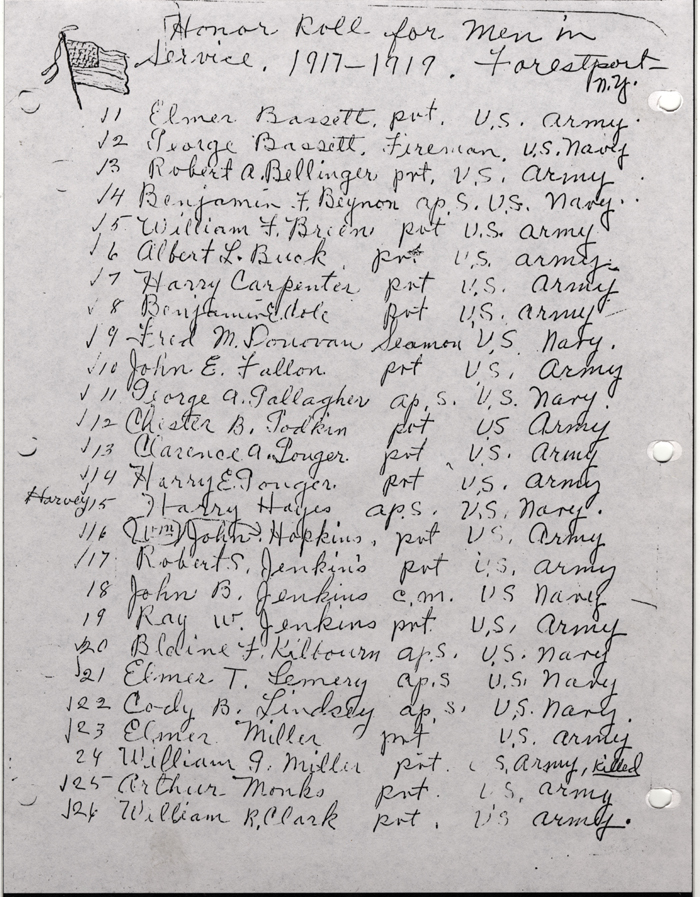 Honor Roll for Men in
Service. 1917-1919. Forestport
N.Y.
√1 Elmer Bassett, pvt. U.S. Army.
√2 George Bassett, Fireman, U.S. Navy
√3 Robert A. Bellinger pvt, U.S. Army
√4 Benjamin F. Beynon ap.S. U.S. Navy.
√5 William F. Brien pvt U.S. army
√6 Albert L. Buck pvt U.S. army.
√7 Harry Carpenter pvt U.S. Army
√8 Benjamin E. Cole pvt U.S. Army
√9 Fred M. Donovan Seaman U.S. Navy.
√10 John E. Fallon pvt U.S. Army
√11 George A. Gallagher ap.s. U.S. Navy.
√12 Chester B. Godkin pvt US Army
√13 Clarence A. Gouger. pvt U.S. Army
√14 Harry E. Gouger. pvt U.S. Army
Harvey √15 Harry Hayes aps. U.S. Navy.
√16 (Wm) John Hopkins, pvt U.S. Army
√17 Robert S. Jenkin's pvt U.S. army
18 John B. Jenkins c.m. US Navy
19 Ray W. Jenkins pvt. U.S. Army
√20 Blaine F. Kilbourn ap.s. U.S. Navy
√21 Elmer T. Lemery ap.s U.S. Navy
√22 Cody B. Lindsey ap.s. U.S. Navy.
√23 Elmer Miller pvt U.S. army
24 William G. Miller pvt. U.S. Army, killed
√25 Arthur Monks pvt. U.S. army
√26 William R. Clark pvt. U.S army.